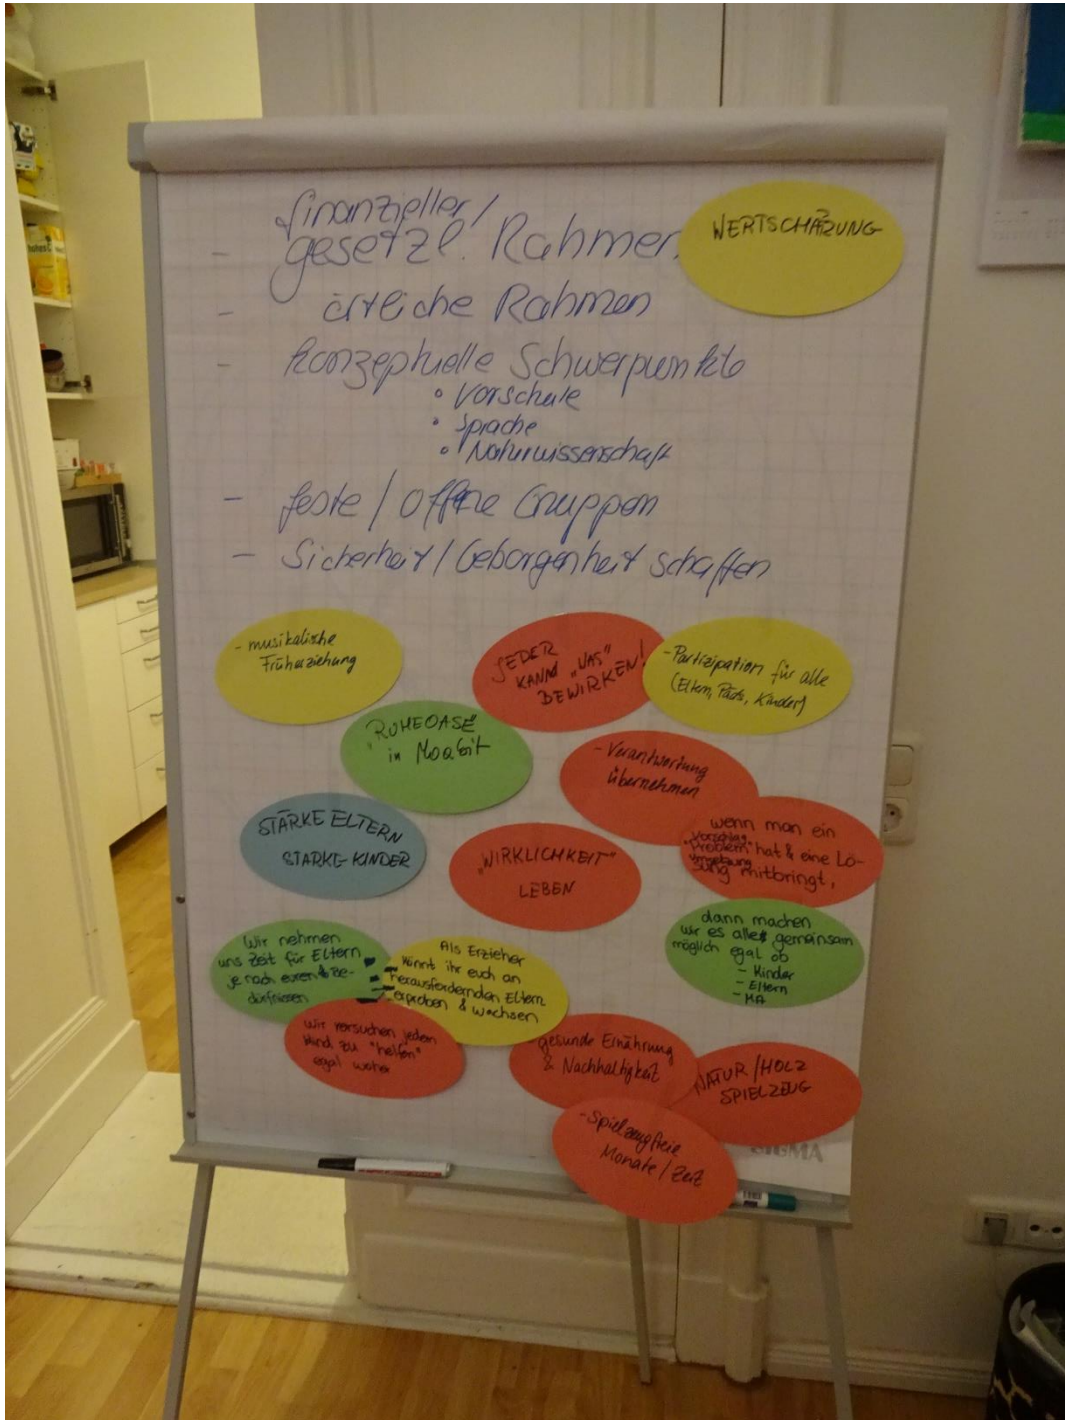 finanzieller/
- gesetzl. Rahmen
WERTSCHÄZUNG
- örtliche Rahmen
- konzeptuelle Schwerpunkte
• Vorschule
• Sprache
• Naturwissenschaft
- feste / offene Gruppen
- Sicherheit / Geborgenheit schaffen
- musikalische
Früherziehung
JEDER
KANN „WAS“
BEWIRKEN!
- Partizipation für alle
(Eltern, Päds, Kinder)
"RUHEOASE"
in Moabit
- Verantwortung
übernehmen
STÄRKE ELTERN
STARKE-KINDER
„WIRKLICHKEIT“
LEBEN
wenn man ein
Vorschlag
"Problem" hat & eine Lö-
Umsetzung
sung mitbringt,
dann machen
wir es alles gemeinsam
möglich egal ob
- Kinder
- Eltern
- MA
Wir nehmen
uns Zeit für Eltern
je nach euren Be-
dürfnissen
Als Erzieher
könnt ihr euch an
herausfordernden Eltern
erproben & wachsen
Wir versuchen jedem
Kind zu "helfen"
egal woher
gesunde Ernährung
& Nachhaltigkeit
NATUR / HOLZ
SPIELZEUG
- Spielzeugfreie
Monate / Zeit
SIGMA